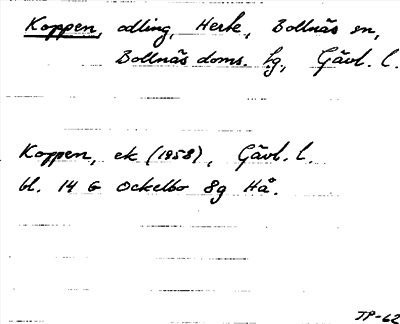 Koppen, odling, Herte, Bollnäs sn,
Bollnäs doms. lg., Gävl. l.
Koppen, ek (1958), Gävl. l.
bl. 14 G Ockelbo 8g Hå.
TP-62